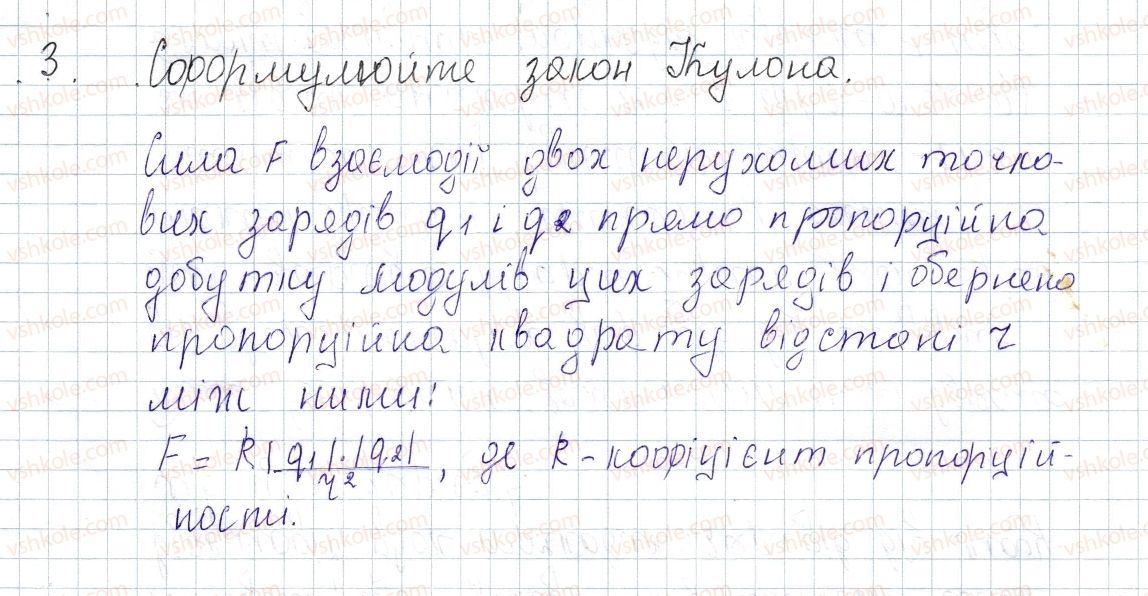 3. Сформулюйте закон Кулона.
Сила F взаємодії двох нерухомих точко-
вих зарядів q1 і q2 прямо пропорційна
добутку модулів цих зарядів і обернено
пропорційна квадрату відстані r
між ними:
F = k |q1|·|q2| / r², де k - коефіцієнт пропорцій-
ності.